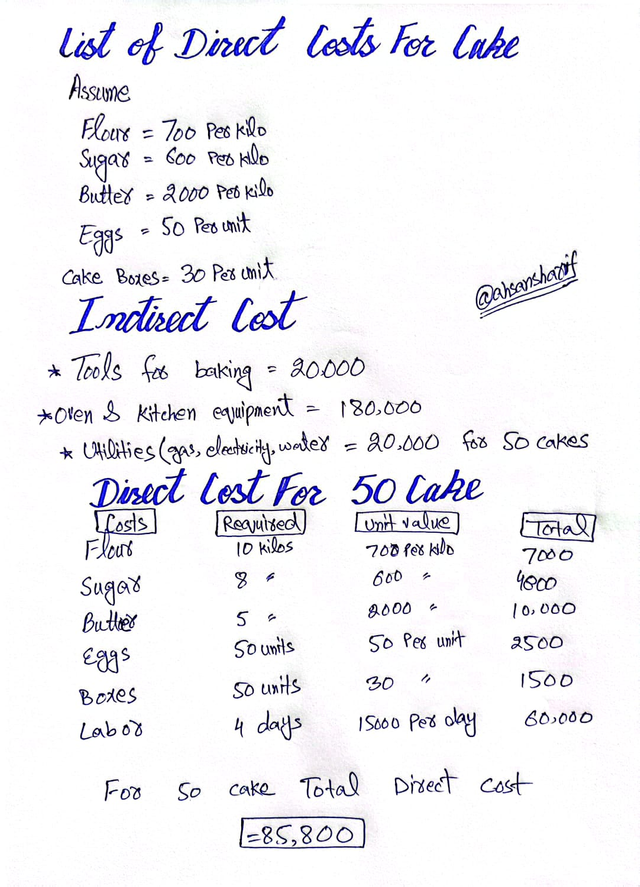 List of Direct Costs For Cake
Assume
Flour = 700 Per kilo
Sugar = 600 Per kilo
Butter = 2000 Per kilo
Eggs = 50 Per unit
Cake Boxes = 30 Per unit
@ahsansharif
Indirect Cost
* Tools for baking = 20.000
* Oven & Kitchen equipment = 180,000
* Utilities (gas, electricity, water = 20,000 for 50 cakes
Direct Cost For 50 Cake
Costs Required Unit value Total
Flour 10 kilos 700 Per kilo 7000
Sugar 8 " 600 " 4800
Butter 5 " 2000 " 10,000
Eggs 50 units 50 Per unit 2500
Boxes 50 units 30 " 1500
Labor 4 days 15000 Per day 60,000
For 50 cake Total Direct cost
=85,800